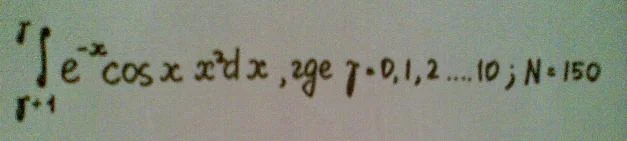 ∫_{γ+1}^{γ} e^{-x} cos x x² dx , где γ = 0, 1, 2 .... 10 ; N = 150